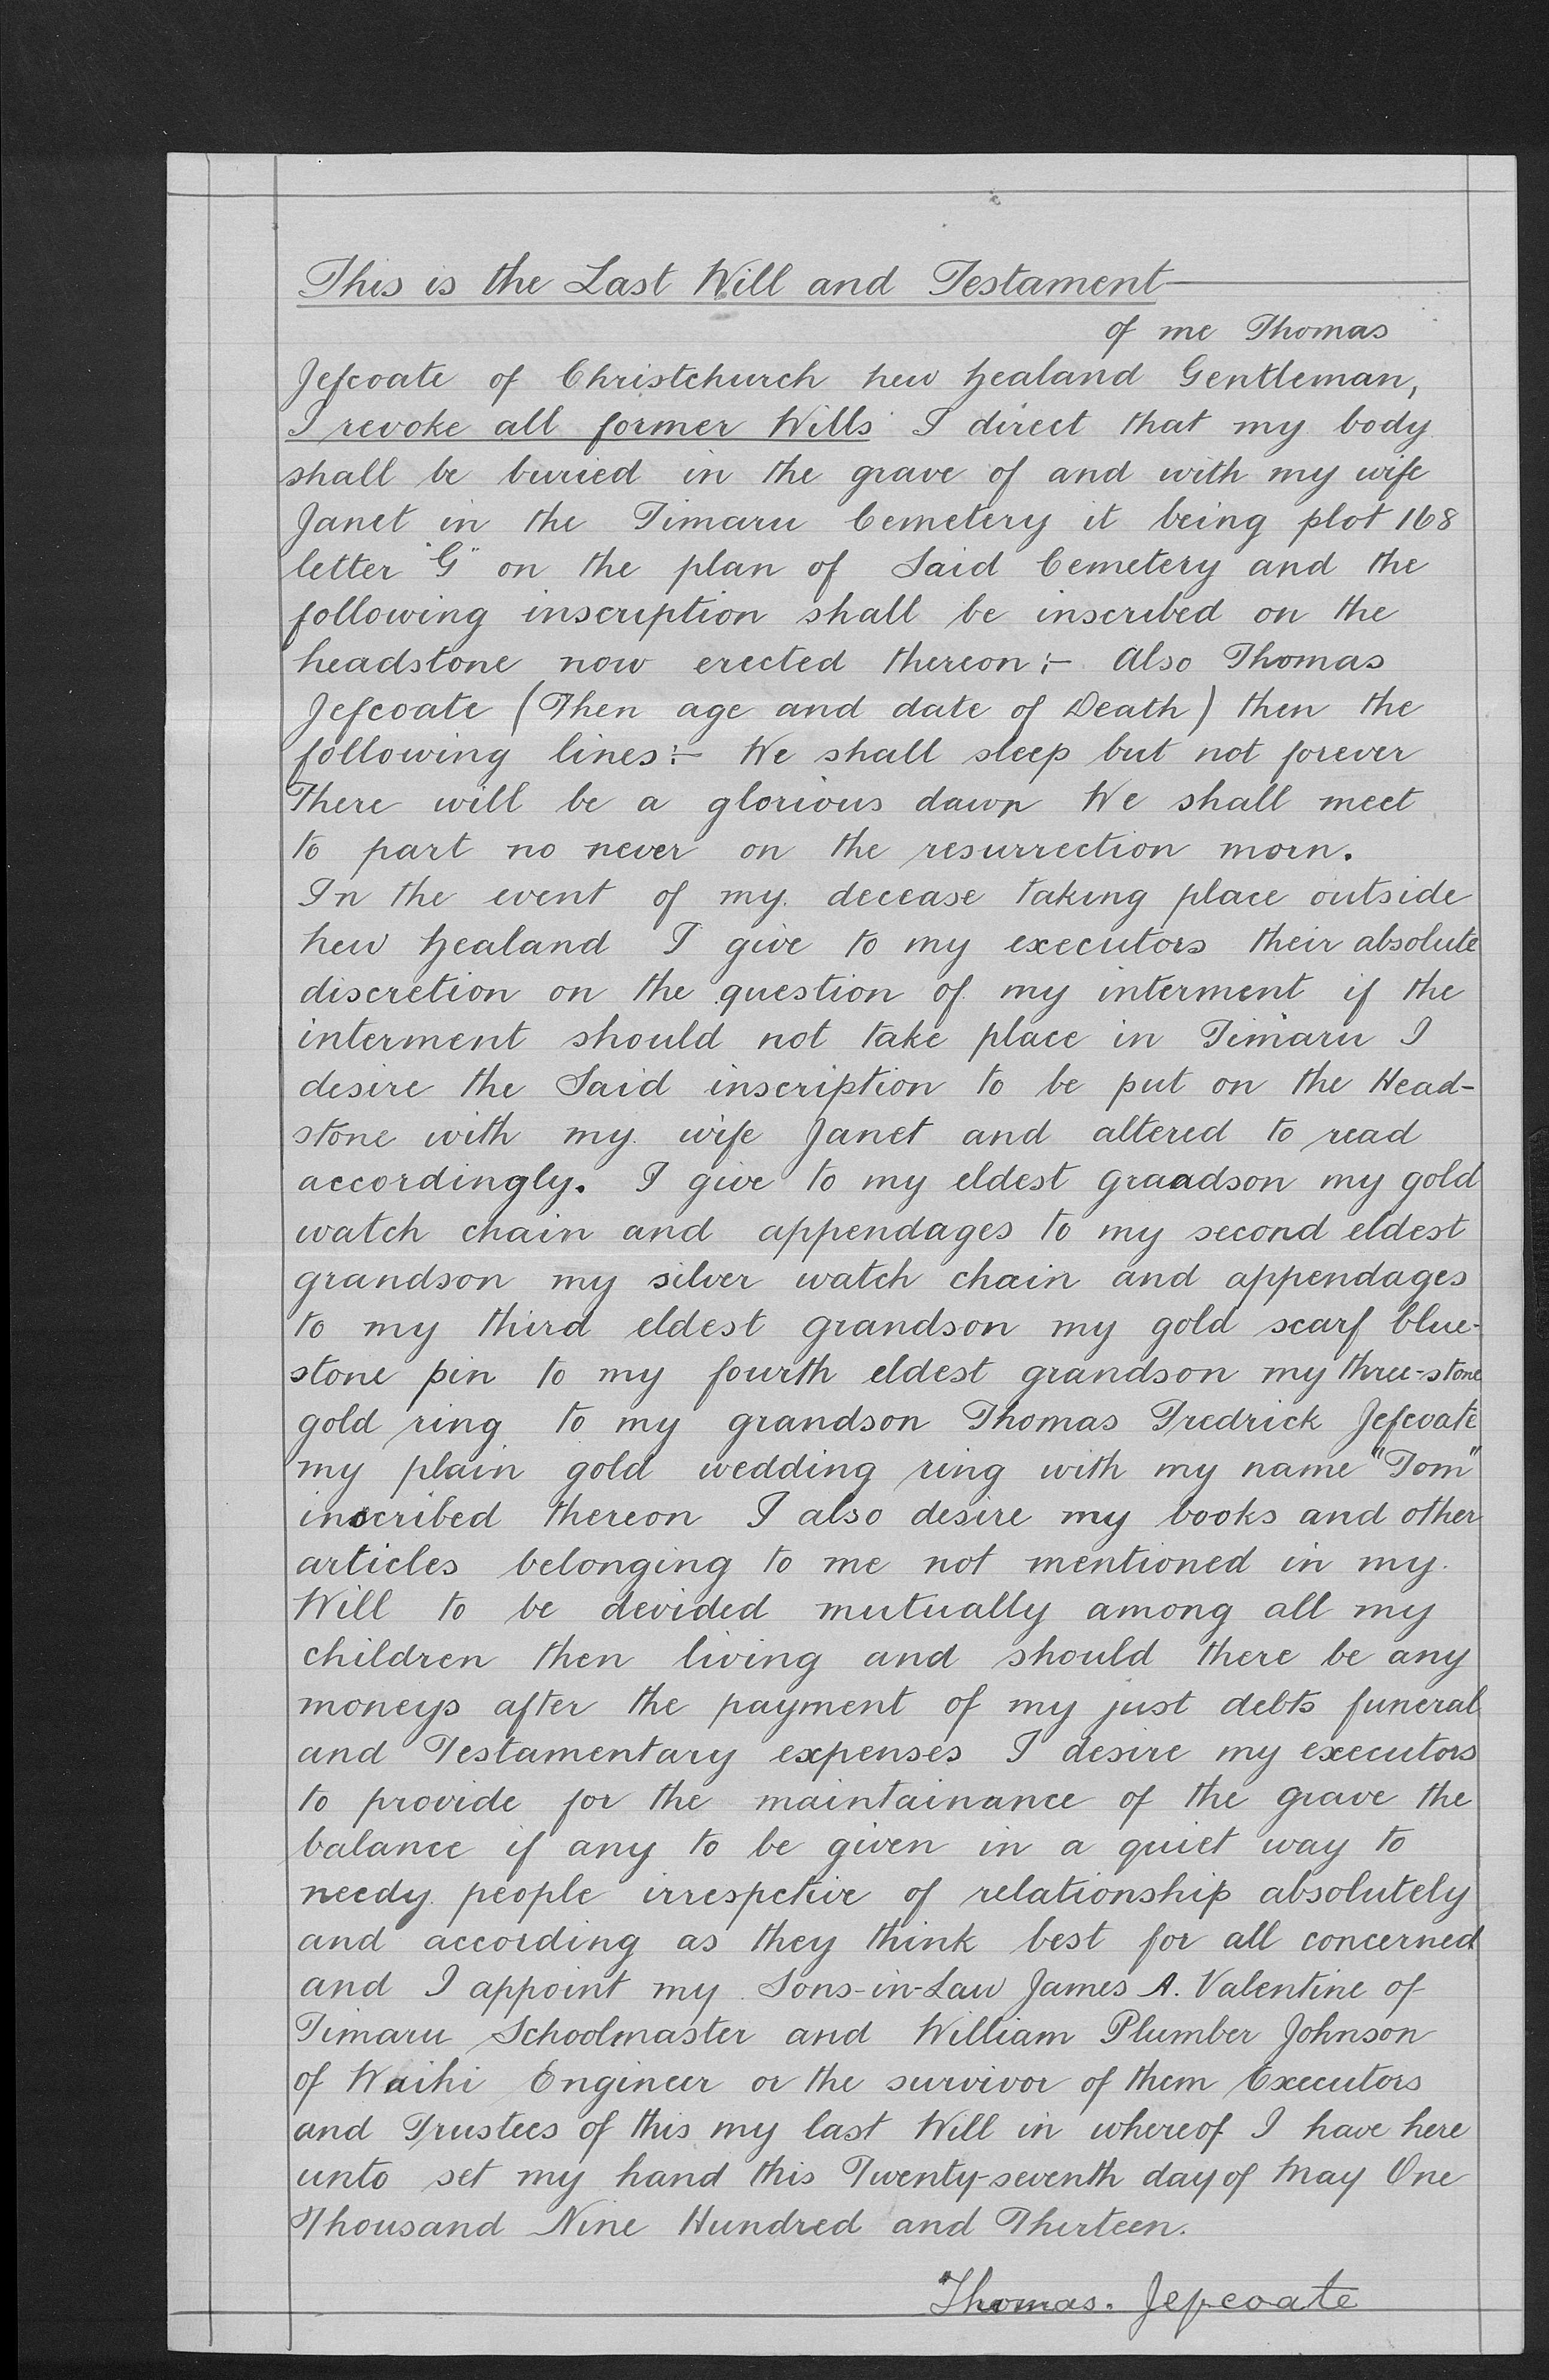 This is the Last Will and Testament
of me Thomas
Jefcoate of Christchurch New Zealand Gentleman,
I revoke all former Wills I direct that my body
shall be buried in the grave of and with my wife
Janet in the Timaru Cemetery it being plot 168
letter "G" on the plan of Said Cemetery and the
following inscription shall be inscribed on the
headstone now erected thereon:- Also Thomas
Jefcoate (Then age and date of Death) then the
following lines:- We shall sleep but not forever
There will be a glorious dawn We shall meet
to part no never on the resurrection morn.
In the event of my decease taking place outside
New Zealand I give to my executors their absolute
discretion on the question of my interment if the
interment should not take place in Timaru I
desire the Said inscription to be put on the Head-
stone with my wife Janet and altered to read
accordingly. I give to my eldest graadson my gold
watch chain and appendages to my second eldest
grandson my silver watch chain and appendages
to my third eldest grandson my gold scarf blue-
stone pin to my fourth eldest grandson my three-stone
gold ring to my grandson Thomas Fredrick Jefcoate
my plain gold wedding ring with my name "Tom"
inscribed thereon I also desire my books and other
articles belonging to me not mentioned in my
Will to be devided mutually among all my
children then living and should there be any
moneys after the payment of my just debts funeral
and Testamentary expenses I desire my executors
to provide for the maintainance of the grave the
balance if any to be given in a quiet way to
needy people irrespctive of relationship absolutely
and according as they think best for all concerned
and I appoint my Sons-in-Law James A. Valentine of
Timaru Schoolmaster and William Plumber Johnson
of Waihi Engineer or the survivor of them Executors
and Trustees of this my last Will in whereof I have here
unto set my hand this Twenty-seventh day of May One
Thousand Nine Hundred and Thirteen.
Thomas. Jefcoate